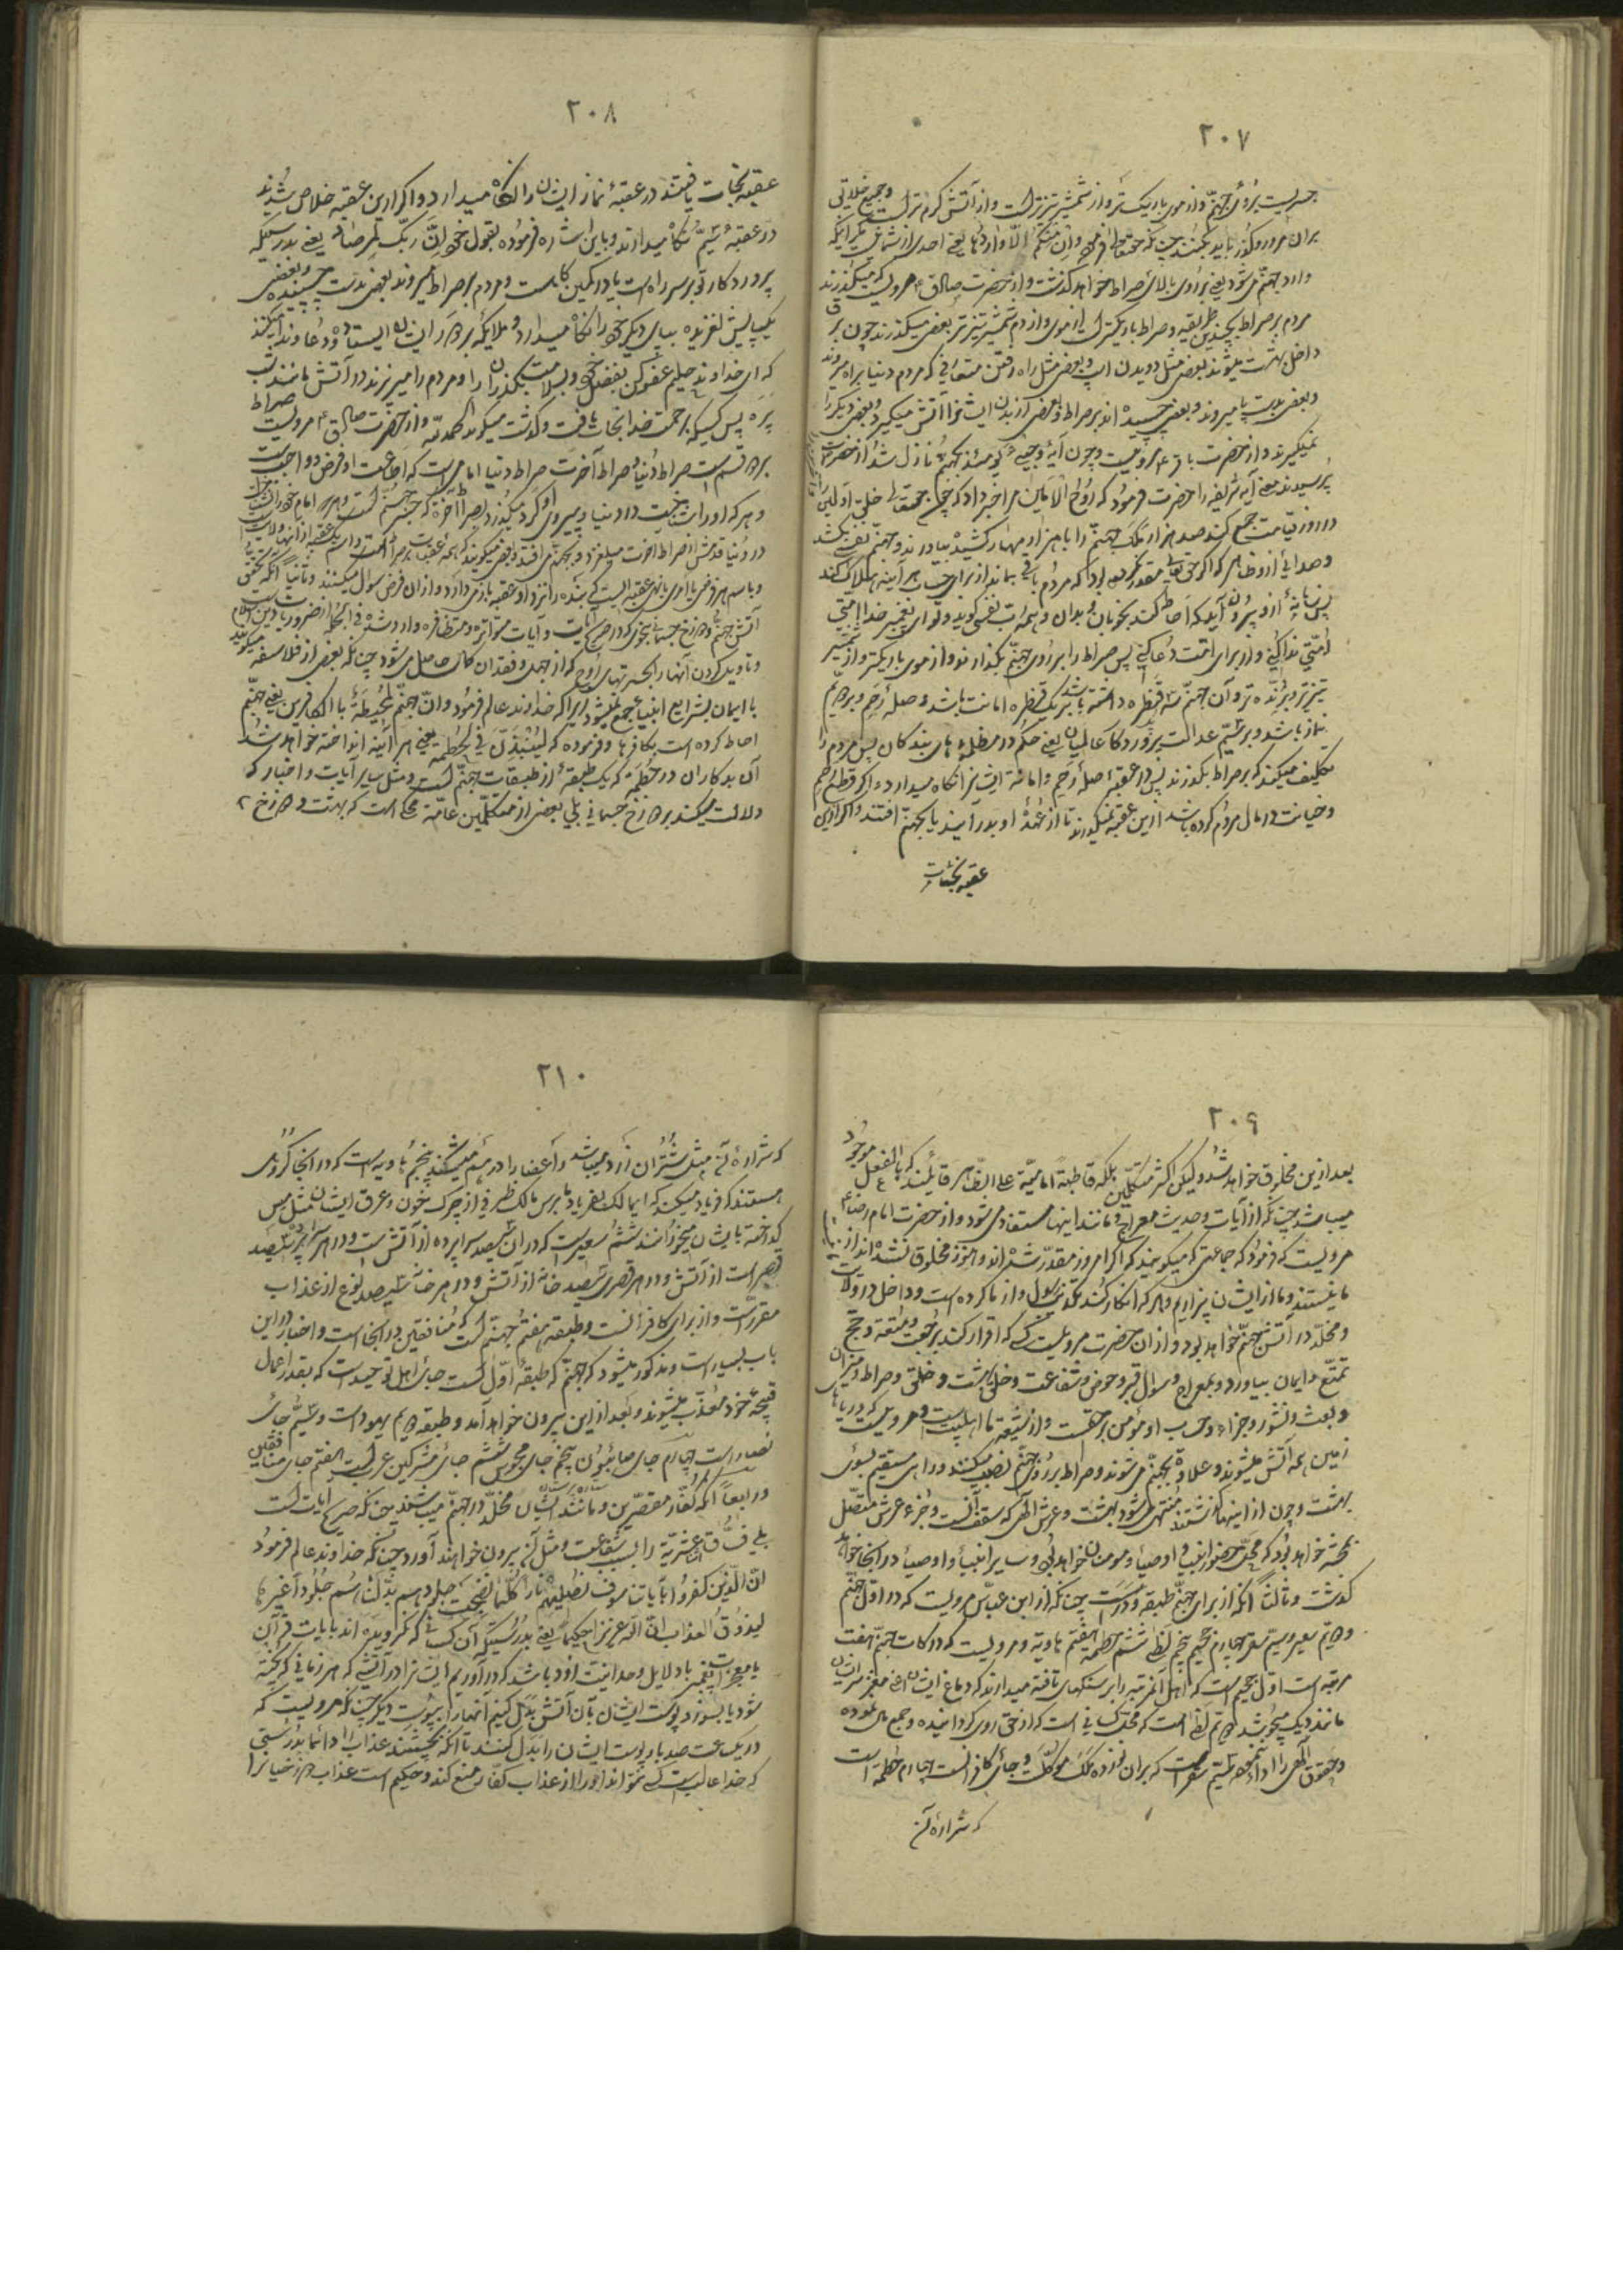 ٢٠٧
جسریست بر روی جهنم و از موی باریک‌تر و از شمشیر تیزتر است و از آتش گرم‌تر است و جمیع خلایق
بر آن مرور و عبور باید بکنند چنانکه حقتعالی فرموده و ان منکم الّا واردها یعنی احدی از شما نیست مگر اینکه
وارد جهنم می‌شود یعنی بر روی بالای صراط خواهد گذشت و از حضرت صادق ع مرویست که میگذرند
مردم بر صراط بچندین طریقه و صراط باریکتر است از موی و از دم شمشیر تیزتر بعضی میگذرند چون برق
داخل بهشت میشوند بعضی مثل دویدن اسب و بعضی مثل راه رفتن متعارفی که مردم دنیا براه میروند
و بعضی بدست و پا میروند و بعضی چسبیده‌اند بر صراط و بعضی از بدن ایشانرا آتش میگیرد و بعضی دیگر را
نمیگیرد و از حضرت باقر ع مرویست چون آیه و جیء یومئذ بجهنم نازل شد از حضرت
پرسیدند معنی آیه شریفه را حضرت فرمود که روح الامین مرا خبر داد که چون حقتعالی خلق اولین
در روز قیامت جمع کند صد هزار ملک جهنم را با هزار مهار کشیده بیاورند و جهنم نفسی بکشد
و صدائی از او ظاهر که اگر حقتعالی مقدر نکرده بود که مردم باقی بمانند از برای حساب هر آینه هلاک کند
پس زبانهٔ از او بیرون آید که احاطه کند بخوبان و بدان و همه رب نفسی گوید و تو ای پیغمبر خدا امتی
امتی ندا کنی و از برای امت دعا کنی پس صراط را بر روی جهنم بگذارند و از موی باریکتر و از شمشیر
تیزتر و برنده‌تر و آن جهنم سه قنطره داشته باشد بر یک قنطره امانت باشد و صلهٔ رحم و بر دویم
نماز باشد و بر سیّم عدالت پروردگار عالمیان یعنی حکم در مظلمه‌های بندگان پس مردم را
تکلیف میکنند که بر صراط بگذرند پس در عقبهٔ صلهٔ رحم و امانت ایشانرا نگاه میدارد و اگر قطع رحم
و خیانت در مال مردم کرده باشد از این عقبه نمیگذرند تا از عهدهٔ او بدر آیند یا بجهنم افتند و اگر از این
عقبه نجات
٢٠٨
عقبه نجات یافتند در عقبهٔ نماز ایشان را نگاه میدارد و اگر از این عقبه خلاص شدند
در عقبهٔ سیّم نگاه میدارند و باین اشاره فرموده بقول خود ان ربک لبالمرصاد یعنی بدرستیکه
پروردگار تو بر سر راه است یا در کمین‌گاهست و مردم بر صراط میروند بعضی بدست چسبیده و بعضی
یکپایش لغزیده بپای دیگر خود را نگاه میدارد و ملایکه بر دور ایشان ایستاده و دعا و ندا میکنند
که ای خداوند حلیم عفو کن بفضل خود و بسلامت بگذران و مردم را میریزند در آتش مانند شب
پره پس کسیکه برحمت خدا نجات یافت و گذشت میگوید الحمدلله و از حضرت صادق ع مرویست صراط
بر دو قسم است صراط دنیا و صراط آخرت صراط دنیا امامی است که اطاعت او فرض و واجبست
و هر که او را شناخت در دنیا و پیروی او کرد میگذرد بصراط آخرت که جسر جهنم است و هر که امام خود را نشناخت
در دنیا قدمش از صراط آخرت میلغزد و بجهنم می‌افتد و بعضی میگویند که همه عقبات بر صراط است و اسم یک عقبه از آنها ولایت
و باسم هر فرضی یا امری یا نهیی عقبه ایست که بنده را نزد آن عقبه باز میدارد و از آن فرض سؤال میکنند و ثانیاً آنکه تحقق
آتش جهنم و دوزخ جسمانی بنحوی که در صریح آیات و آیات متواتره و متظافره وارد شده فی الجمله از ضروریات دین اسلام
و تأویل کردن آنها را بحسرتهای روح که از جهل و فقدان کمالات حاصل می‌شود چنانکه بعضی از فلاسفه میگویند
با ایمان بشرایع انبیا جمع نمیشود زیرا که خداوند عالم فرموده و ان جهنم لمحیطة بالکافرین یعنی جهنم
احاطه کرده است بکافرها و فرموده که لینبذن فی الحطمه یعنی هر آینه انداخته خواهد شد
آن بدکاران در حطمه که یک طبقهٔ از طبقات جهنم است و مثل سایر آیات و اخبار که
دلالت میکند بر دوزخ جسمانی بلی بعضی از متکلّمین عامّه محکی است که بهشت و دوزخ
٢٠٩
بعد از این مخلوق خواهد شد ولیکن اکثر متکلمین بلکه قاطبهٔ امامیّه علی الظاهر قایلند که بالفعل موجود
میباشد چنانکه از آیات و حدیث معراج و مانند اینها مستفاد می‌شود و از حضرت امام رضا ع
مرویست که فرمود که جماعتی که میگویند که امروز مقدر شده‌اند و هنوز مخلوق نشده‌اند از
ما نیستند و ما از ایشان بیزاریم و هر که انکار کند تکذیب رسول و از ما کرده است و داخل در ولایت
و مخلّد در آتش جهنم خواهد بود و از آن حضرت مرویست کسی که اقرار کند برجعت و متعه و حج
تمتّع و ایمان بیاورد و بمعراج و سؤال قبر و حوض و شفاعت و خلق بهشت و خلق و صراط و میزان
و بعث و نشور و جزاء و حساب او مؤمن بر حقست و از شیعه ما اهل بیت است و مرویست که دریاها
زمین همه آتش میشوند و علاوه بجهنم می‌شوند و صراط بر روی جهنم نصب میکنند و راهی مستقیم بسوی
بهشت و چون از اینها گذشتند منتهی می‌شود بهشت و عرش الهی که سقف آنست و جزء عرش متصل
بجنّت خواهد بود که محل حضور انبیا و اوصیا و مؤمنان خواهد بود و سایر انبیا و اوصیا در آنجا خواهد
گذشت و ثالثاً آنکه از برای جهنم طبقه و درکات است چنانکه از ابن عباس مرویست که در اول جهنم
دویم سعیر و سیّم سقر چهارم جحیم پنجم لظی ششم حطمه هفتم هاویه و مرویست که درکات جهنم هفت
مرتبه است اول جحیم است که اهل آن مرتبه را بر سنگهای تافته میدارند که دماغ ایشان مغز سر ایشان
مانند دیک میجوشد دویم لظی است که محل کسانی است که از حق روی گردانیده و جمع مال نموده
و حقوق الهی را ادا ننموده سیّم سقر است که بر آن نوزده ملک موکّل است و جای کافرانست چهارم حطمه است
که شرارهٔ آن
٢١٠
که شرارهٔ آن مثل شتران زرد میباشد و اعضا را در هم میشکند پنجم هاویه است که در آنجا گروهی
هستند که فریاد میکنند که ای مالک بفریاد ما برس مالک ظرفی از چرک و خون و عرق ایشان مثل مس
گداخته بایشان میخورانند ششم سعیر است که در آن سیصد سراپرده از آتش است و در هر سراپرده سیصد
قصر است از آتش و در هر قصری سیصد خانه از آتش و در هر خانه سیصد نوع از عذاب
مقرر است و از برای کافرانست و طبقه هفتم جهنم است که منافقین در آنجا است و اخبار در این
باب بسیار است و مذکور میشود که جهنم که طبقهٔ اول است جای اهل توحید است که بقدر اعمال
قبیحهٔ خود معذب میشوند و بعد از این بیرون خواهد آمد و طبقه دویم یهود است و سیّم جای
نصارا است چهارم جای صابئون پنجم جای مجوس ششم جای مشرکین عرب است هفتم جای منافقین
و رابعاً آنکه کفار مقصرین و مانند ایشان مخلّد در جهنم میباشند چنانکه صریح آیات است
بلی فساق اثنا عشریه را بسبب شفاعت و مثل آن بیرون خواهند آورد چنانکه خداوند عالم فرموده
ان الذین کفروا بآیاتنا سوف نصلیهم نارا کلّما نضجت جلودهم بدّلناهم جلودا غیرها
لیذوقوا العذاب ان الله عزیزا حکیما یعنی بدرستیکه آن کسانی که نگرویده‌اند بآیات قرآن
یا معجزات پیغمبر یا دلایل وحدانیت زود باشد که در آوریم ایشانرا در آتش که هر زمانی که پخته
شود یا بسوزد پوست ایشان بآن آتش بدل کنیم آنها را بپوست دیگر چنانکه مرویست که
در یک ساعت صد بار پوست ایشان را بدل کنند تا آنکه بچشند عذاب را دائما بدرستی
که خدا غالبست که کسی نتواند او را از عذاب کفار منع کند و حکیم است عذاب دوزخیانرا